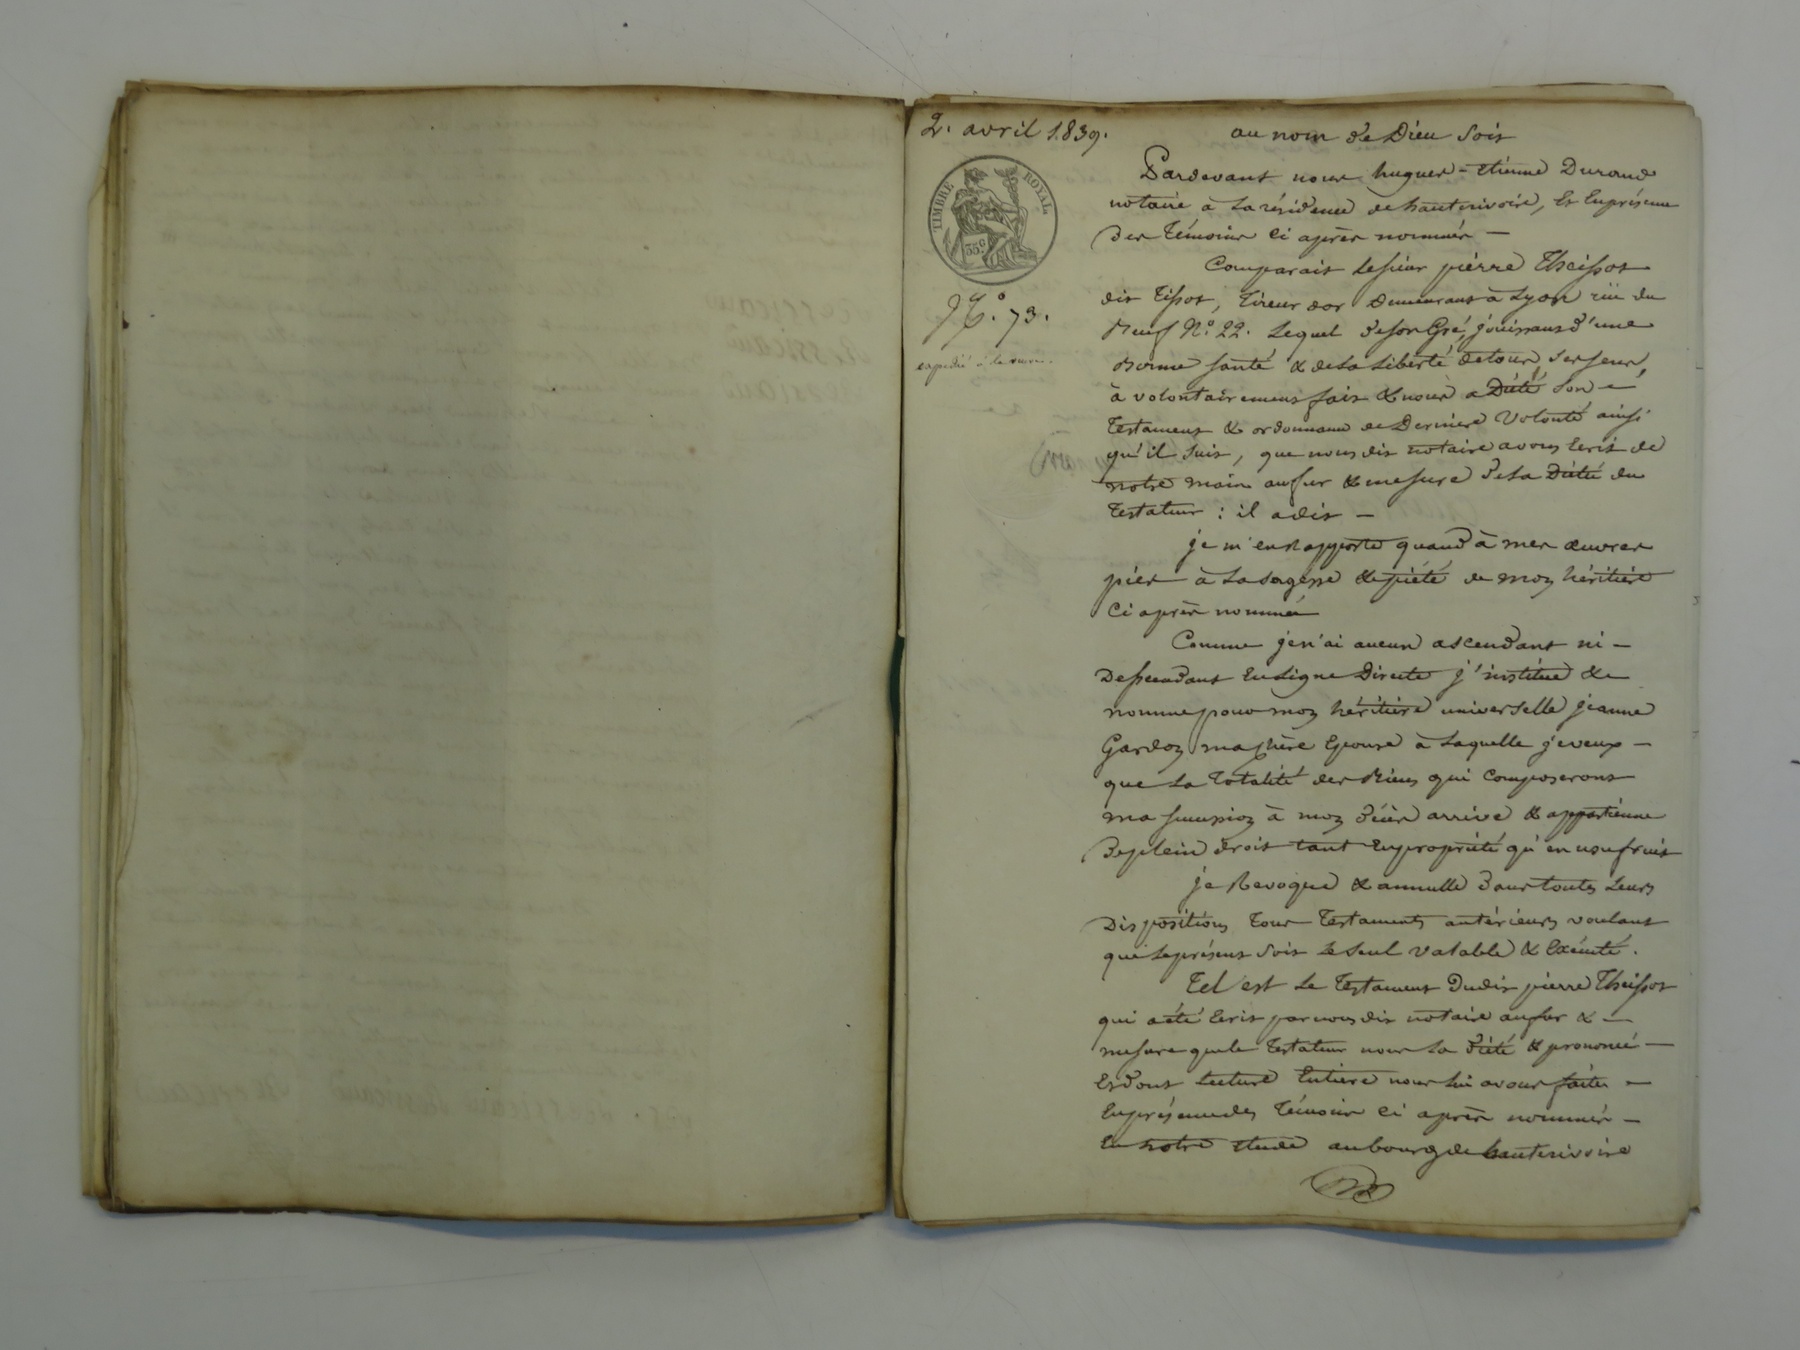 2. avril 1839.
TIMBRE ROYAL
35 c
N.° 73.
expédié à la veuve.
au nom de Dieu soit
Pardevant nous hugues-Etienne Durand
notaire à la résidence de hauterivoire, Et Enprésence
Des Témoins ci après nommés —
Comparait le sieur pièrre Theissot
dit Tissot, Tireur dor demeurant à Lyon rüe du
Beuf N.° 22. Lequel de son Gré, jouissant d'une
Bonne santé & de la Liberté de tous ses sens,
à volontairement fait & nous a Dicté son —
Testament & ordonnance de Dernière Volonté ainsi
qu'il suit, que nous dit notaire avons Ecrit de
notre main aufur & mesure de la Dictée du
Testateur : il a dit —
je m'en Rapporte quand à mes œuvres
pies à la sagesse & piété de mon héritière
Ci après nommée
Comme je n'ai aucun ascendant ni —
Dessendant En Ligne Directe j'institüe &
nomme pour mon héritière universelle jeanne
Gardon ma chère Epouse à Laquelle je veux —
que La Totalité des Biens qui Composeront
ma succession à mon décès arrive & appartienne
De plein droit tant En propriété qu'en usufruit
je Revoque & annulle dans toutes Leurs
Dispositions Tous Testaments antérieurs voulant
que le présent soit Le seul valable & Exécuté.
Tel est Le Testament Dudit pierre Theissot
qui a été Ecrit par nous dit notaire aufur & —
mesure que le Testateur nous la dicté & prononcé —
Et dont Lecture Entière nous lui avons faite —
En présence des Témoins ci après nommés —
En notre étude au bourg de hauterivoire